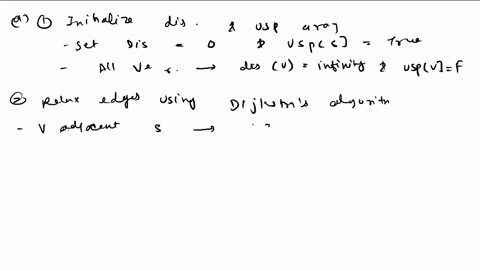 a) ① Initialize dis. & usp array
- Set Dis = 0 & usp[s] = True
- All Ve s. → des(v) = infinity & usp[v]=F
② Relax edges using Dijkstra's algorithm
- V adjacent s →